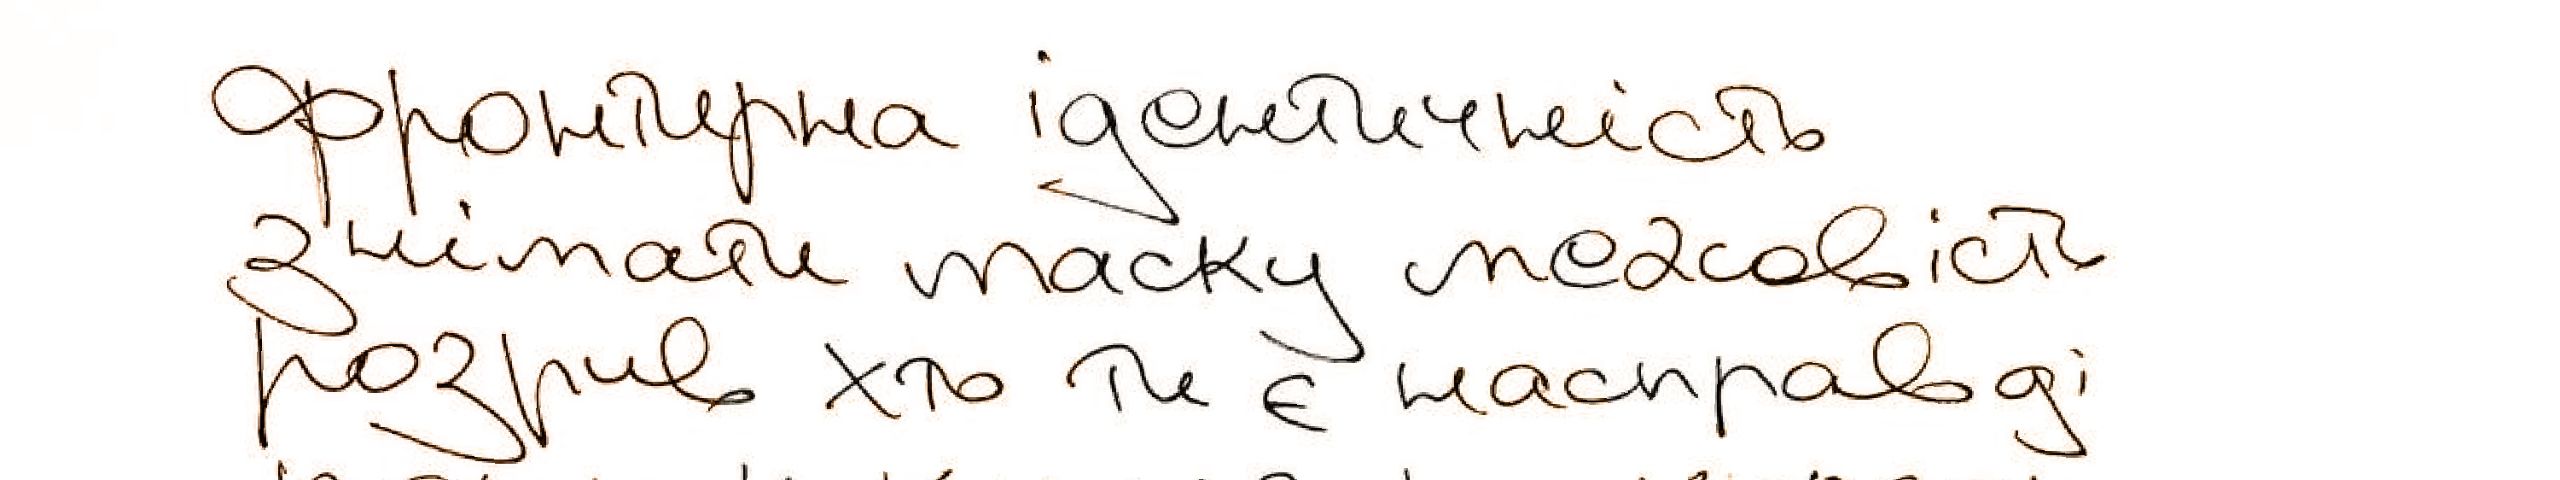 фронтирна ідентичність
знімати маску межовість
розрив хто ти є насправді